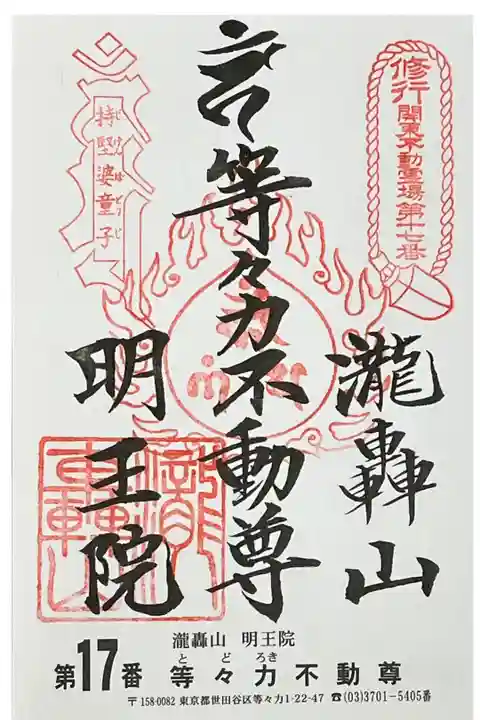 修行 関東不動霊場第十七番
瀧轟山
等々力不動尊
明王院
持堅婆童子
じけんばどうじ
瀧轟山
瀧轟山 明王院
とどろき
第17番 等々力不動尊
〒158-0082 東京都世田谷区等々力1-22-47 ☎(03)3701-5405番